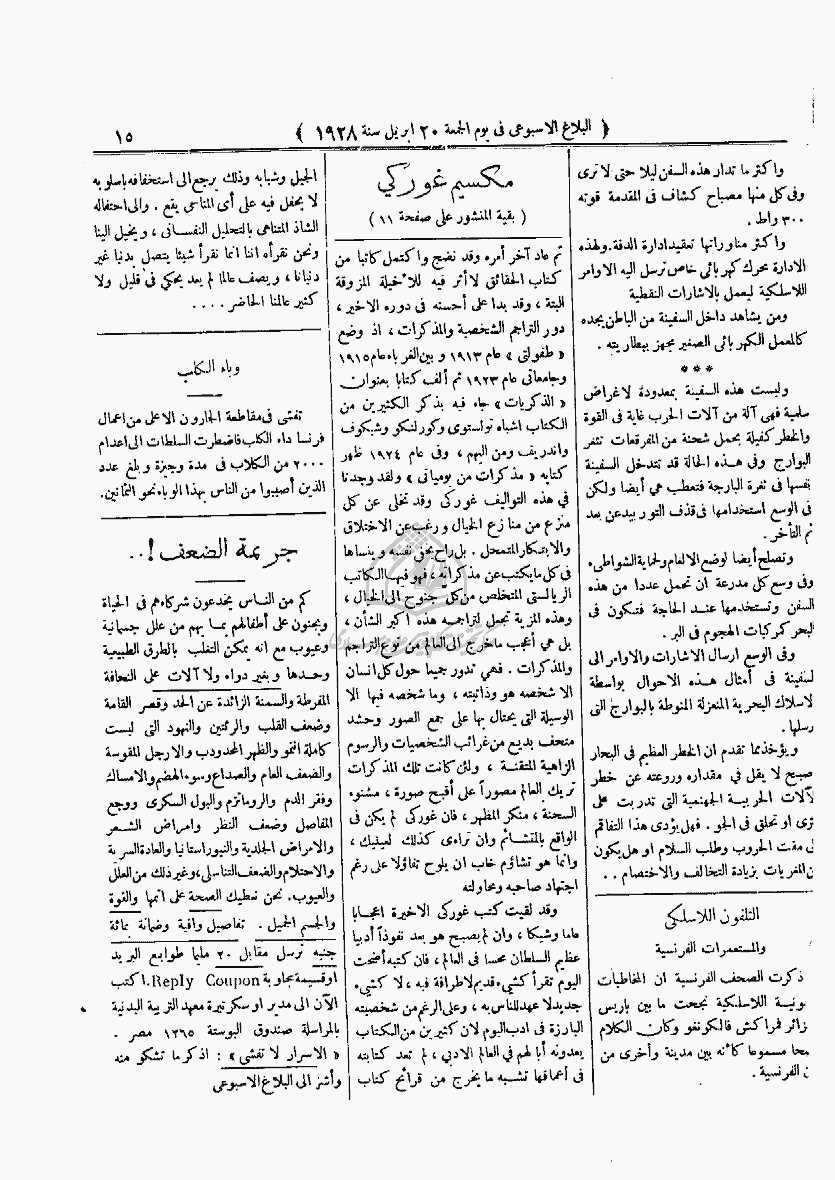 ﴿ البلاغ الاسبوعى فى يوم الجمعة ٢٠ ابريل سنة ١٩٢٨ ﴾
١٥
واكثر ما تدار هذه السفن ليلا حتى لا ترى
وفى كل منها مصباح كشاف فى المقدمة قوته
٣٠٠ واط .
واكثر مناوراتها تعقيدا ادارة الدفة. ولهذه
الادارة محرك كهربائى خاص ترسل اليه الاوامر
اللاسلكية ليعمل بالاشارات النقطية
ومن يشاهد داخل السفينة من الباطن يجده
كالمعمل الكهربائى الصغير مجهز ببطاريته .
* * *
وليست هذه السفينة بمعدودة لاغراض
سلمية فهى آلة من آلات الحرب غاية فى القوة
والخطر كفيلة بحمل شحنة من المفرقعات تثغر
البوارج وفى هذه الحالة قد تتدخل السفينة
بنفسها فى ثغرة البارجة فتعطب هي أيضا ولكن
فى الوسع استخدامها فى قذف التوربيد عن بعد
ثم التأخر .
وتصلح أيضا لوضع الالغام ولحماية الشواطىء
وفى وسع كل مدرعة ان تحمل عددا من هذه
السفن وتستخدمها عند الحاجة فتكون فى
البحر كمركبات الهجوم فى البر .
وفى الوسع ارسال الاشارات والاوامر الى
لسفينة فى أمثال هذه الاحوال بواسطة
لاسلاك البحرية المنعزلة المنوطة بالبوارج التى
رسلها .
ويؤخذ مما تقدم ان الخطر العظيم فى البحار
صبح لا يقل في مقداره وروعته عن خطر
لآلات الحربية الجهنمية التى تدربت على
ثرى او تحلق فى الجو . فهل يؤدى هذا التفاقم
لى مقت الحروب وطلب السلام او هل يكون
ن المغريات بزيادة التخالف والاختصام . .
التلفون اللاسلكي
والمستعمرات الفرنسية
ذكرت الصحف الفرنسية ان المخاطبات
فونية اللاسلكية نجحت ما بين باريس
زائر فمراكش فالكونغو وكان الكلام
ضحا مسموعا كأنه بين مدينة وأخرى من
ن الفرنسية .
مكسيم غوركي
( بقية المنشور على صفحة ١١ )
ثم عاد آخر أمره وقد نضج واكتمل كاتبا من
كتاب الحقائق لا أثر فيه للاخيلة المزوقة
البتة ، وقد بدا على أحسنه فى دوره الاخير ،
دور التراجم الشخصية والمذكرات ، اذ وضع
« طفولتى » عام ١٩١٣ و بين الغرباء عام ١٩١٥
وجامعاتى عام ١٩٢٣ ثم ألف كتابا بعنوان
« الذكريات » جاء فيه بذكر الكثيرين من
الكتاب اشباه تولستوى وكورلنكو وشيكوف
واندريف ومن اليهم ، وفى عام ١٩٢٤ ظهر
كتابه « مذكرات من يومياتى » ولقد وجدنا
في هذه التواليف غوركى وقد تخلى عن كل
منزع من منازع الخيال ورغب عن الاختلاق
والابتكار المتمحل . بل راح يخفى نفسه و ينساها
فى كل ما يكتب عن مذكراته ، فهو فيها الكاتب
الريالستى المتخلص من كل جنوح الى الخيال ،
وهذه المزية تجعل لتراجمه هذه اكبر الشأن ،
بل هى أعجب ما خرج الى العالم من نوع التراجم
والمذكرات . فهى تدور جميعا حول كل انسان
الا شخصه هو وذاتيته ، وما شخصه فيها الا
الوسيلة التى يحتال بها على جمع الصور وحشد
متحف بديع من غرائب الشخصيات والرسوم
الزاهية المتقنة ، ولئن كانت تلك المذكرات
تريك العالم مصوراً على أقبح صورة ، مشنوء
السحنة ، منكر المظهر ، فان غوركى لم يكن فى
الواقع بالمتشائم وان تراءى كذلك لعينيك ،
وانما هو تشاؤم خاب ان يلوح تفاؤلا على رغم
اجتهاد صاحبه ومحاولته
وقد لقيت كتب غوركى الاخيرة اعجابا
عاما وشيكا ، وان لم يصبح هو بعد نفوذاً أدبيا
عظيم السلطان محسا فى العالم ، فان كتبه أضحت
اليوم تقرأ كشىء قديم لاطرافة فيه ، لا كشىء
جديد لا عهد للناس به ، وعلى الرغم من شخصيته
البارزة فى ادب اليوم لان كثيرين من الكتاب
يعدونه أبا لهم في العالم الادبي ، لم تعد كتابته
فى أعماقها تشبه ما يخرج من قرائح كتاب
الجيل وشبابه وذلك يرجع الى استخفافه باسلوبه
لا يحفل فيه على أى المتاسى يقع . والى احتفاله
الشاذ المتناهى بالتحليل النفسانى ، و يخيل الينا
ونحن نقرأه اننا انما نقرأ شيئا يتصل بدنيا غير
دنيانا ، و يصف عالما لم يعد يحكي فى قليل ولا
كثير عالمنا الحاضر . . . .
وباء الكلب
تفشى فى مقاطعة الجارون الاعلى من اعمال
فرنسا داء الكلب فاضطرت السلطات الى اعدام
٢٠٠٠ من الكلاب فى مدة وجيزة و بلغ عدد
الذين أصيبوا من الناس بهذا الوباء نحو الثمانين.
جريمة الضعف ! . .
كم من الناس يخدعون شركاءهم فى الحياة
ويجنون على أطفالهم بما بهم من علل جسمانية
وعيوب مع انه يمكن التغلب بالطرق الطبيعية
وحدها و بغير دواء ولا آلات على النحافة
المفرطة والسمنة الزائدة عن الحد وقصر القامة
وضعف القلب والرئتين والنهود التى ليست
كاملة النمو والظهر المحدودب والارجل المقوسة
والضعف العام والصداع وسوء الهضم والامساك
وفقر الدم والروماتزم والبول السكرى ووجع
المفاصل وضعف النظر وامراض الشعر
والامراض الجلدية والنيوراستانيا والعادة السرية
والاحتلام والضعف التناسلى، وغير ذلك من العلل
والعيوب. نحن نعطيك الصحة على اتمها والقوة
والجسم الجميل . تفاصيل وافية وضمانة بمائة
جنيه ترسل مقابل ٢٠ مليما طوابع البريد
او قسيمة مجاوبة Reply Coupon. اكتب
الآن الى مدير او سكرتيرة معهد التربية البدنية
بالمراسلة صندوق البوستة ١٣٦٥ مصر .
« الاسرار لا تفشى » : اذكر ما تشكو منه
وأشر الى البلاغ الاسبوعى